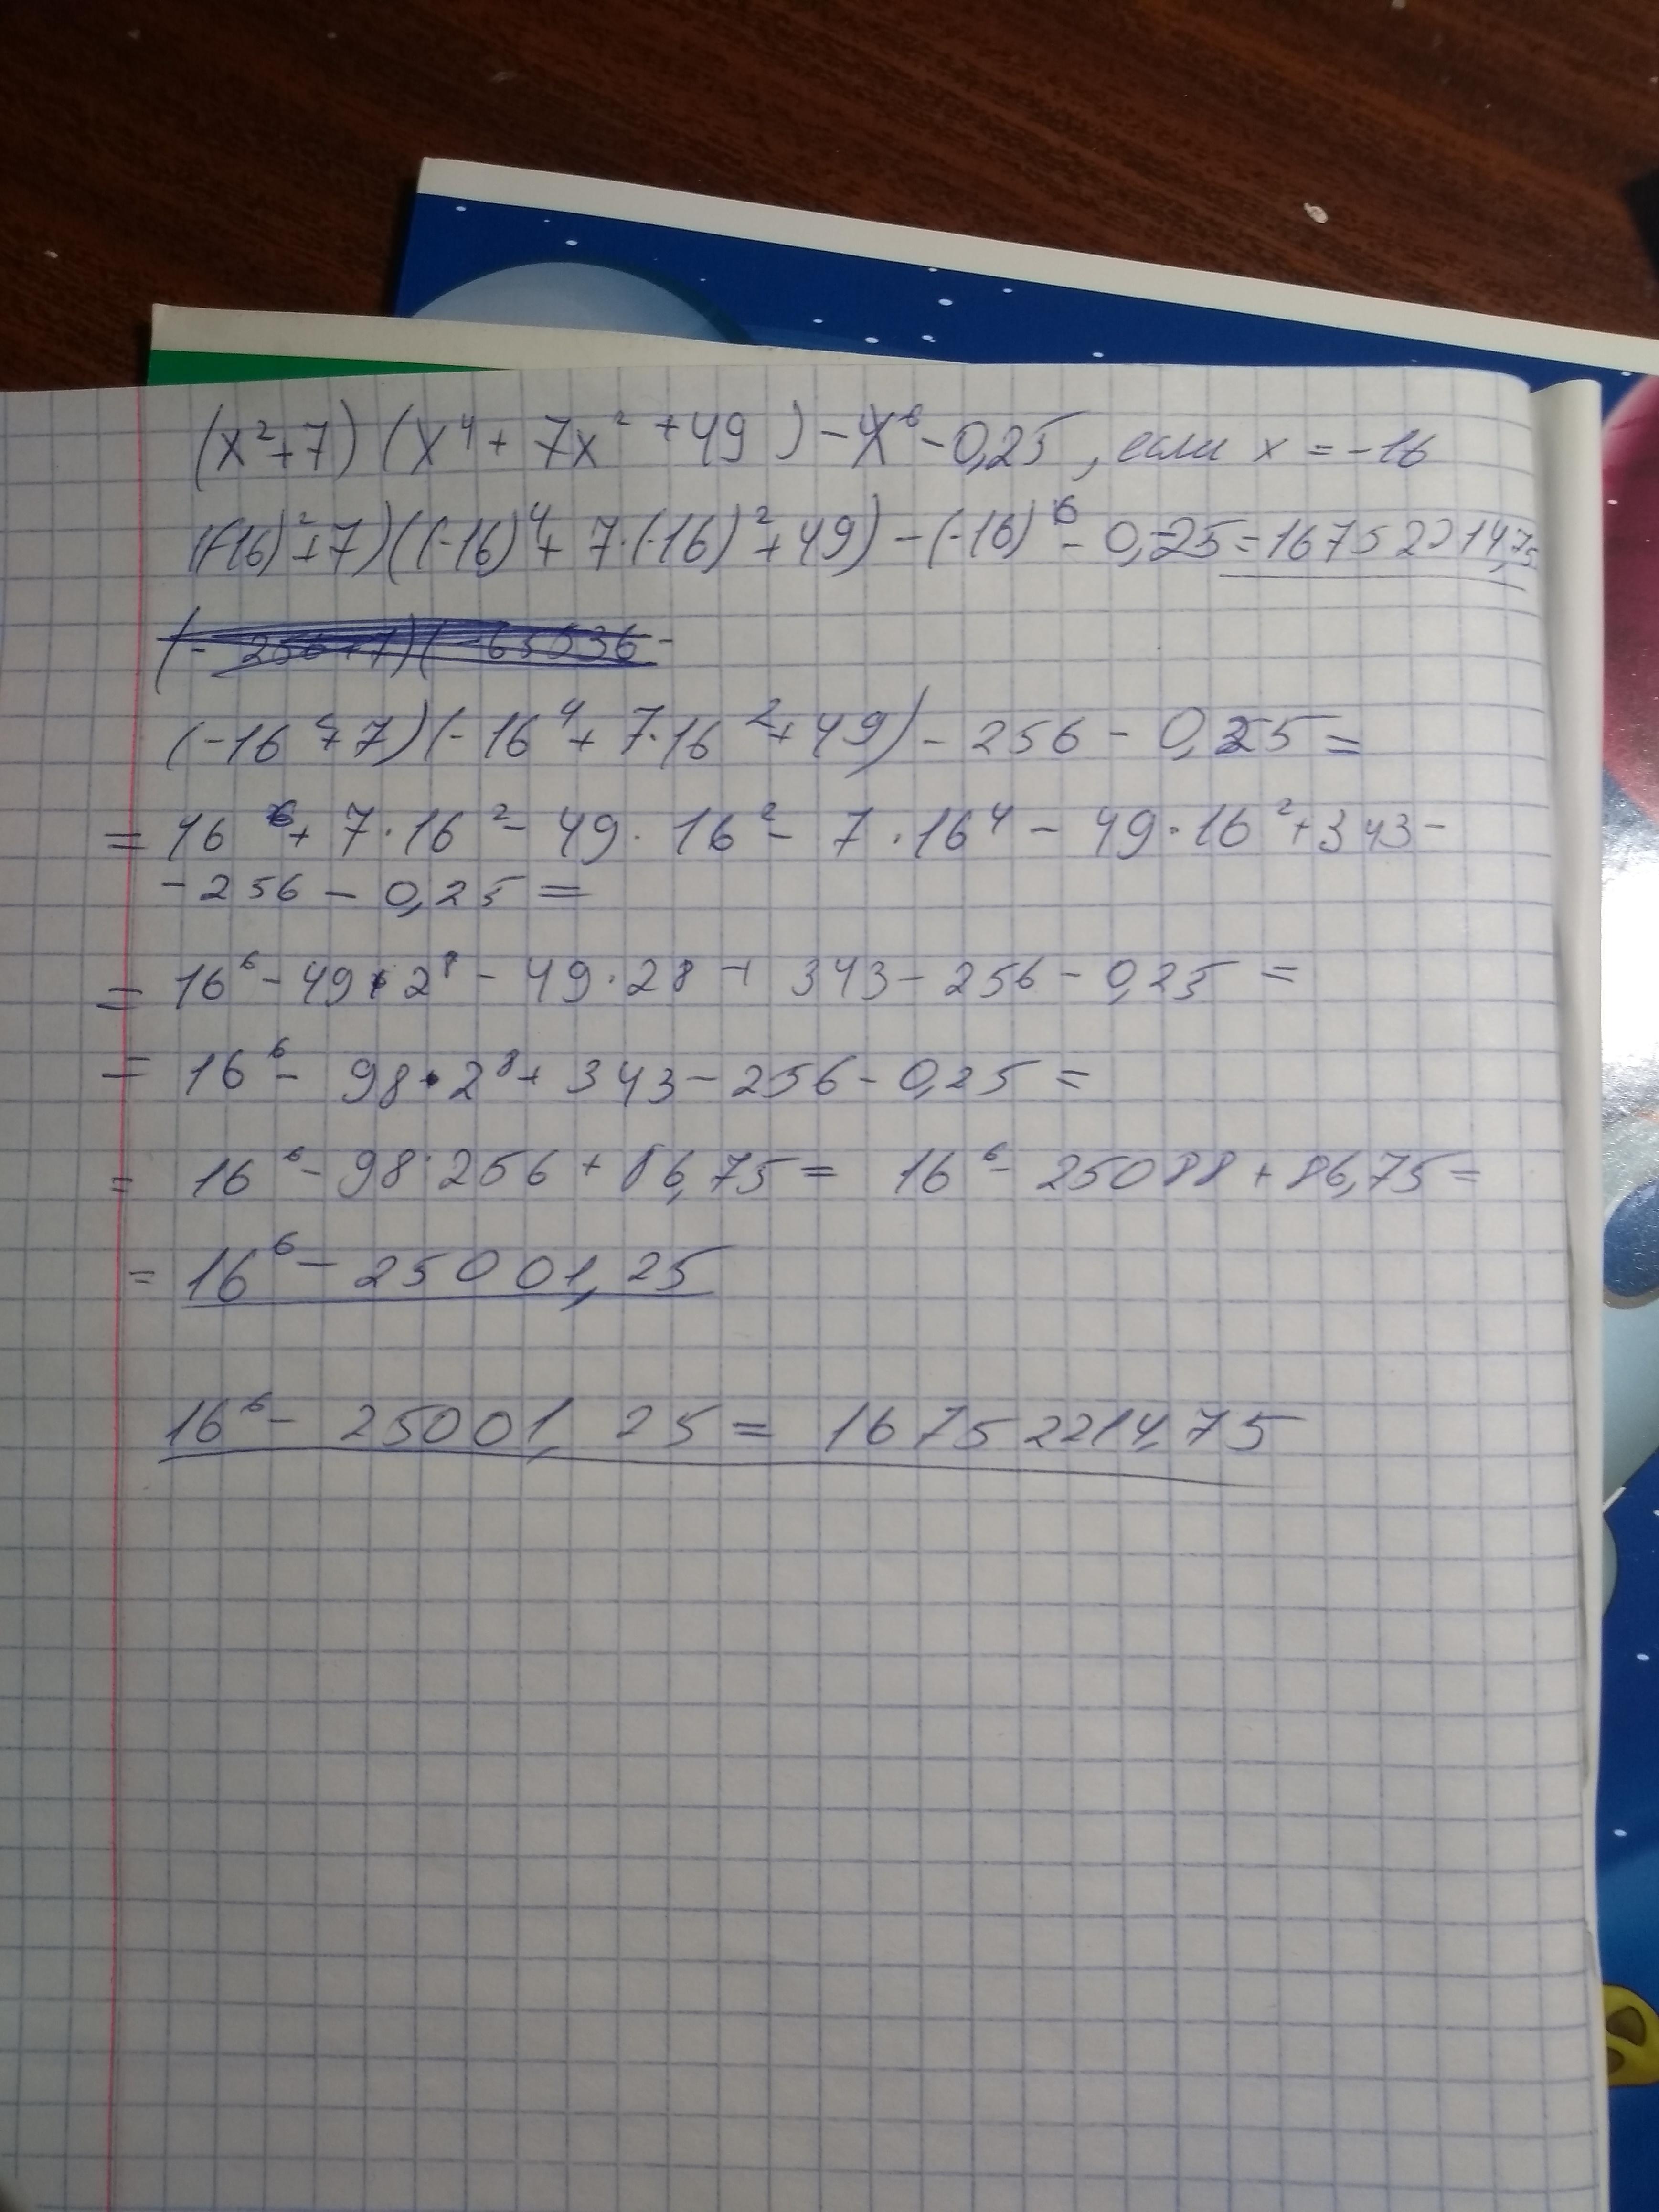 (x²+7)(x⁴+7x²+49)-x⁶-0,25, если x=-16
((-16)²+7)((-16)⁴+7·(-16)²+49)-(-16)⁶-0,25=16752214,75
(-256+7)(-65536-
(-16²+7)(-16⁴+7·16²+49)-256-0,25=
=16⁶+7·16²-49·16²-7·16⁴-49·16²+343-
-256-0,25=
=16⁶-49·2⁸-49·28+343-256-0,25=
=16⁶-98·2⁸+343-256-0,25=
=16⁶-98·256+86,75=16⁶-25088+86,75=
=16⁶-25001,25
16⁶-25001,25=16752214,75